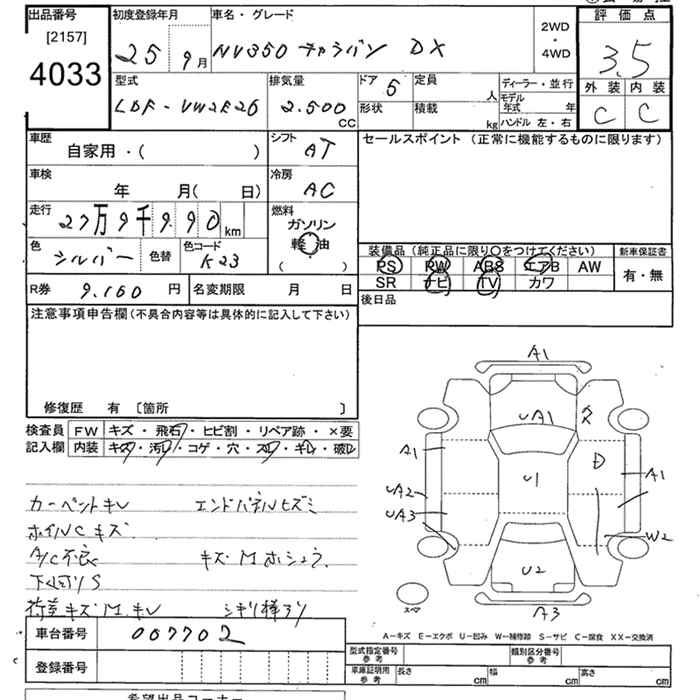 出品番号
[2157]
4033
初度登録年月
25 9月
車名・グレード
NV350 キャラバン DX
2WD
・
4WD
評価点
3.5
外装 内装
C C
型式
LDF-VW2E26
排気量
2.500
CC
ドア 5
形状
定員
人
積載
kg
ディーラー・並行
モデル
年式 年
ハンドル 左・右
車歴
自家用・( )
シフト
AT
車検
年 月( 日)
冷房
AC
走行
27万9千990 km
燃料
ガソリン
軽油
( )
色
シルバー
色替
色コード
K23
R券 9.160 円
名変期限 月 日
セールスポイント (正常に機能するものに限ります)
装備品 (純正品に限り○をつけてください)
PS PW ABS エアB AW
SR ナビ TV カワ
新車保証書
有・無
後日品
注意事項申告欄(不具合内容等は具体的に記入して下さい)
修復歴 有 〔箇所 〕
検査員
記入欄
FW キズ・飛石・ヒビ割・リペア跡・×要
内装 キズ・汚レ・コゲ・穴・スレ・キレ・破レ
カーペントキレ エンドパネルヒズミ
ホイルCキズ
A/C不良 キズMホシュウ
下廻りS
荷室キズMキレ シキリ棒アリ
A1
UA1
A1
U1
A1
UA2
UA3
W2
U2
A3
スペア
A－キズ E－エクボ U－凹み W－補修跡 S－サビ C－腐食 XX－交換済
車台番号 007702
登録番号
型式指定番号
参考
類別区分番号
参考
車庫証明用
参考
長さ cm
幅 cm
高さ cm
希望出品コーナー